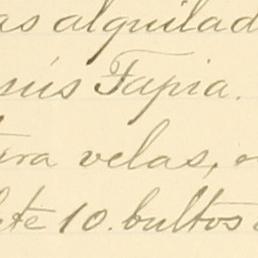 as alquilad
sús Tapia.
ra velas,
te 10. bultos